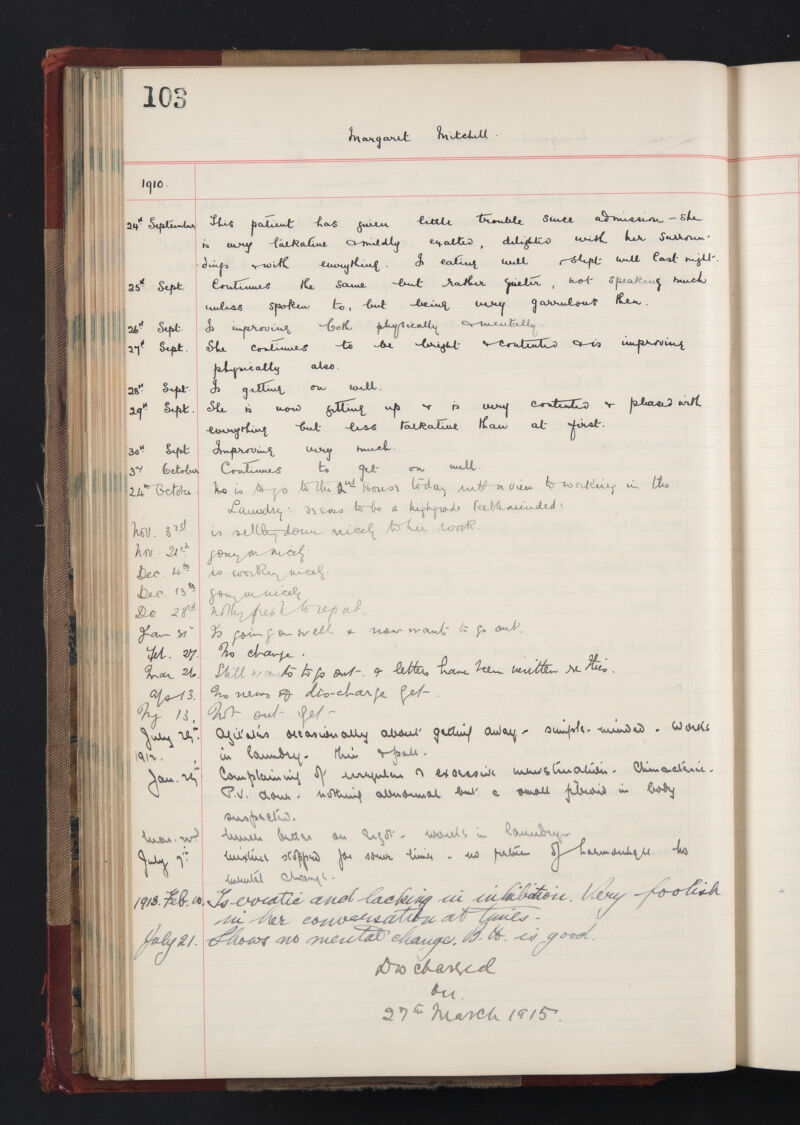 103
Margaret Mitchell.
1910.
24th September This patient has given little trouble since admission - she
is very talkative & mildly exalted, delighted with her surroun-
-dings & with everything. Is eating well & slept well last night.
25th Sept Continues the same but rather quieter, not speaking much
unless spoken to, but being very garrulous then.
26th Sept Is improving both physically & mentally.
27th Sept. She continues to be bright & contented & is improving
physically also.
28th Sept. Is getting on well.
29th Sept. She is now getting up & is very contented & pleased with
everything but less talkative than at first.
30th Sept Improving very much.
3rd October Continues to get on well.
24th October. is to go to the 2nd House today with a view to working in the
Laundry: seems to be a highgrade feebleminded:
Nov. 3rd is settling down nicely to her work.
Nov. 21st going on nicely.
Dec. 4th is working nicely.
Dec. 13th going on nicely
Do 28th nothing fresh to report.
Jan 31st Is going on well & now wants to go out.
Feb. 27. No change.
Mar 26. Still wants to go out - & letters have been written re this.
Ap 13. No news of discharge yet.
13. Not out yet -
July 29th. Agitates occasionally about getting away - simple-minded. Works
1912. in laundry. Thin & pale.
Jan. 29th Complaining of irregular & excessive menstruation. Climacteric.
P.V. done. nothing abnormal but a small fibroid in body
suspected.
Mar. 22nd Much better on Ergot - works in laundry.
July 7th Mixture stopped for some time - no return of haemorrhage. No
mental change.
1913. Feb. 10. Is erratic and lacking in inhibition. Very foolish
in her conversation at times.
July 21. Shows no mental change. B.H. is good.
Discharged
on.
27th March 1915.